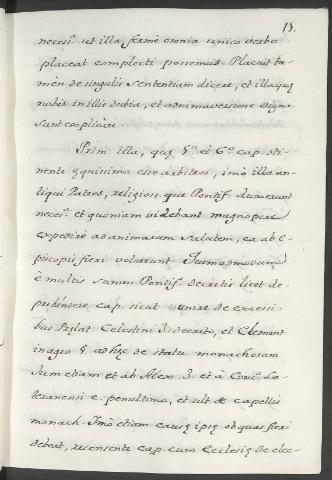 15.
necess.m ut illa fermè omnia unico verbo
placeat complecti possemus Placuit ta-
mèn de singulis sententiam dicere, et illa quę
nobis in illis dubia, et animaversione digna
sunt explicare.
Prim. illa, quę 5.o et 6.o cap. sti-
nentr ęquissima esse arbitror, imò illa an-
tiqui Patres, religion. que Pontif. duxerunt
necess.a et quoniam videbant magnoperè
expedire ad animarum salutem, ea ab E-
piscopis fieri voluerunt.
è multis summ. Pontif. decretis licet de-
prehendere cap. sicut de excessi-
bus Pręlat Celestini 3. decreto, et Clement
in agro §. ad hęc de statu monachorum
Tum etiam et ab Alex. 3. et à Conc. La-
teranensi c. penultimo, et ult. de capellis
monach. Imò etiam causę ipsę ob quas fieri
debeat, recensentr cap. cum Ecclesię de elec-